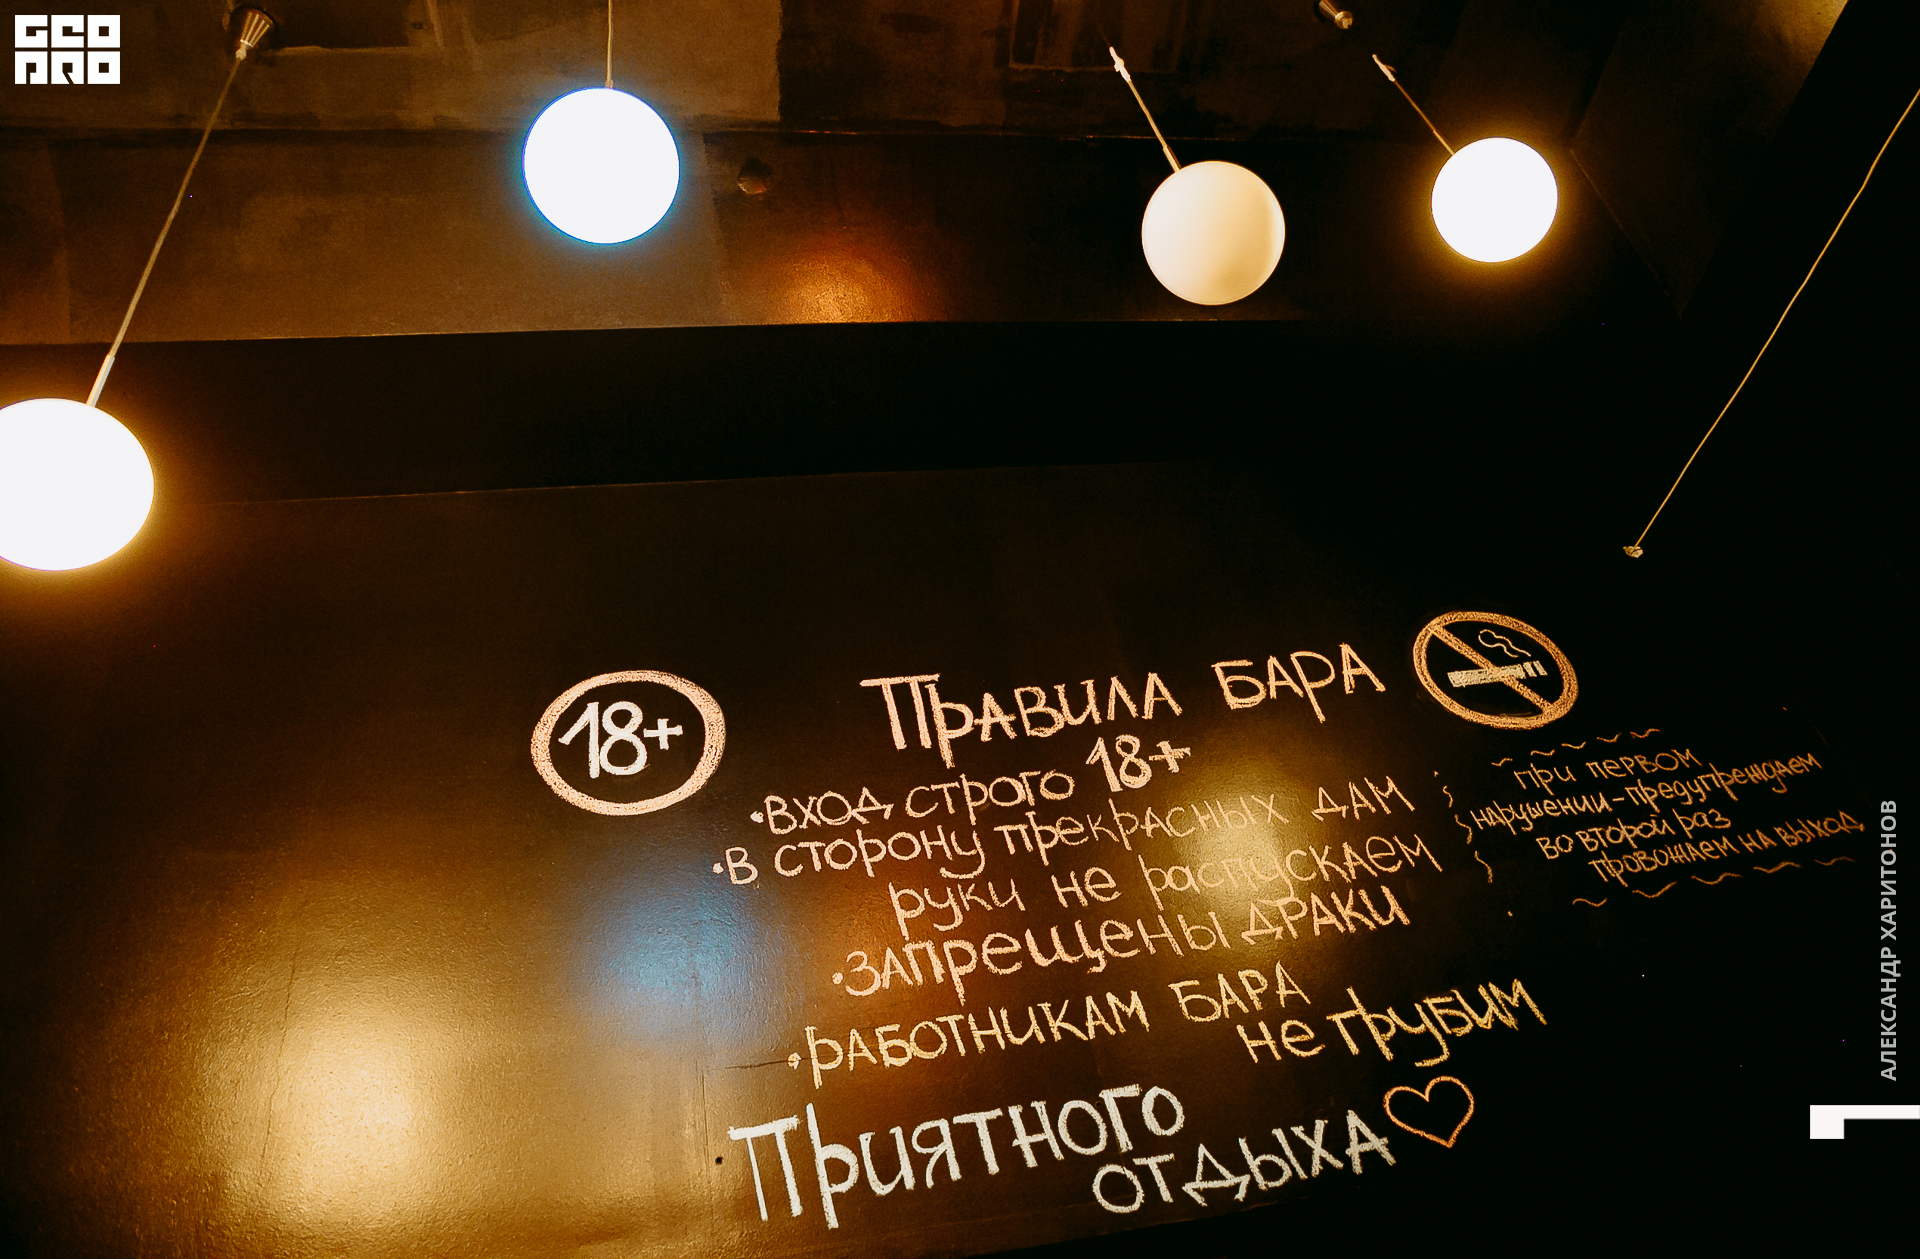 GEO
PRO
18+
Правила БАРА
•ВХОД строго 18+
•В сторону прекрасных дам
руки не распускаем
•Запрещены драки
•работникам БАРА
не грубим
Приятного
отдыха
при первом
нарушении-предупреждаем
во второй раз
провожаем на выход
АЛЕКСАНДР ХАРИТОНОВ